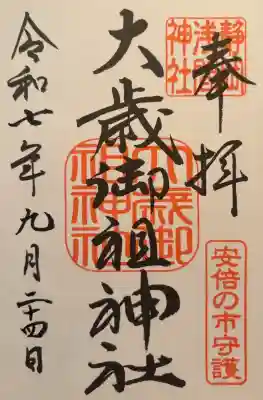 奉拝
静岡浅間神社
大歳御祖神社
大歳御祖神社
安倍の市守護
令和七年九月二十四日